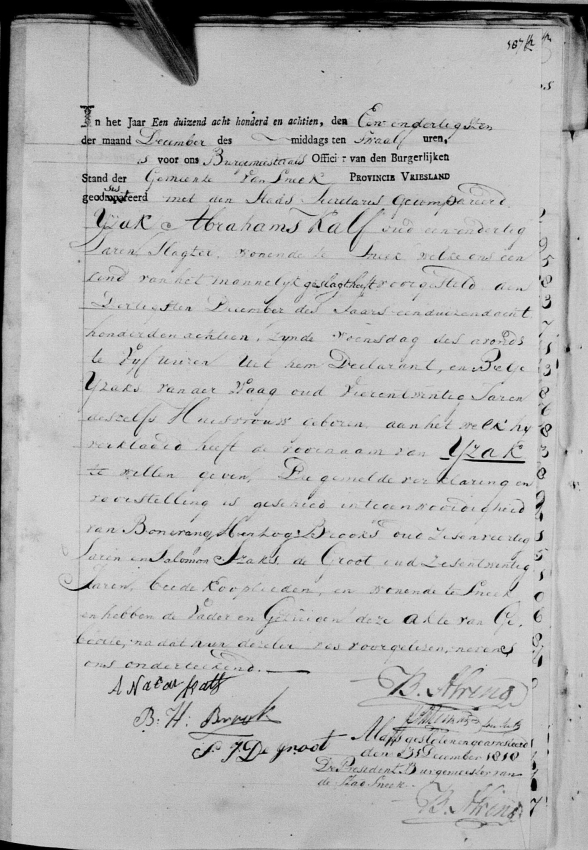 187
In het Jaar Een duizend acht honderd en achtien, den Een en dertigsten
der maand December des middags ten Twaalf uren,
is voor ons Burgemeester als Officier van den Burgerlijken
Stand der Gemeente van Sneek PROVINCIE VRIESLAND
geadsisteerd met den Stads Secretaris Gecompareerd
Yzak Abrahams Kalf oud een en dertig
Jaren, Slagter, wonende te Sneek welke ons een
kind van het mannelyk geslagt heeft voorgesteld den
Dertigsten December des Jaars een duizend acht
honderd en achtien, zynde woensdag des avonds
te Vyf uuren Uit hem Declarant, en Bele
Yzaks van der Vaag oud Vierentwintig Jaren
deszelfs Huisvrouw geboren, aan het welk hy
verklaard heeft de voornaam van Yzak
te willen geven, De gemelde verklaring en
voorstelling is geschied in tegenwoordigheid
van Hertzog Brook oud Zesenveertig
Jaren en Salomon Izaks de Groot oud Zesentwintig
Jaren, beide Kooplieden, en wonende te Sneek
en hebben de Vader en Getuigen deze Akte van Ge-
boorte, na dat hun dezelve was voorgelezen, nevens
ons onderteekend.
B. H. Brook
S. J. De Groot
Alzo gesloten en gearresteerd
den 31 December 1818
De President Burgemeester van
de Stad Sneek